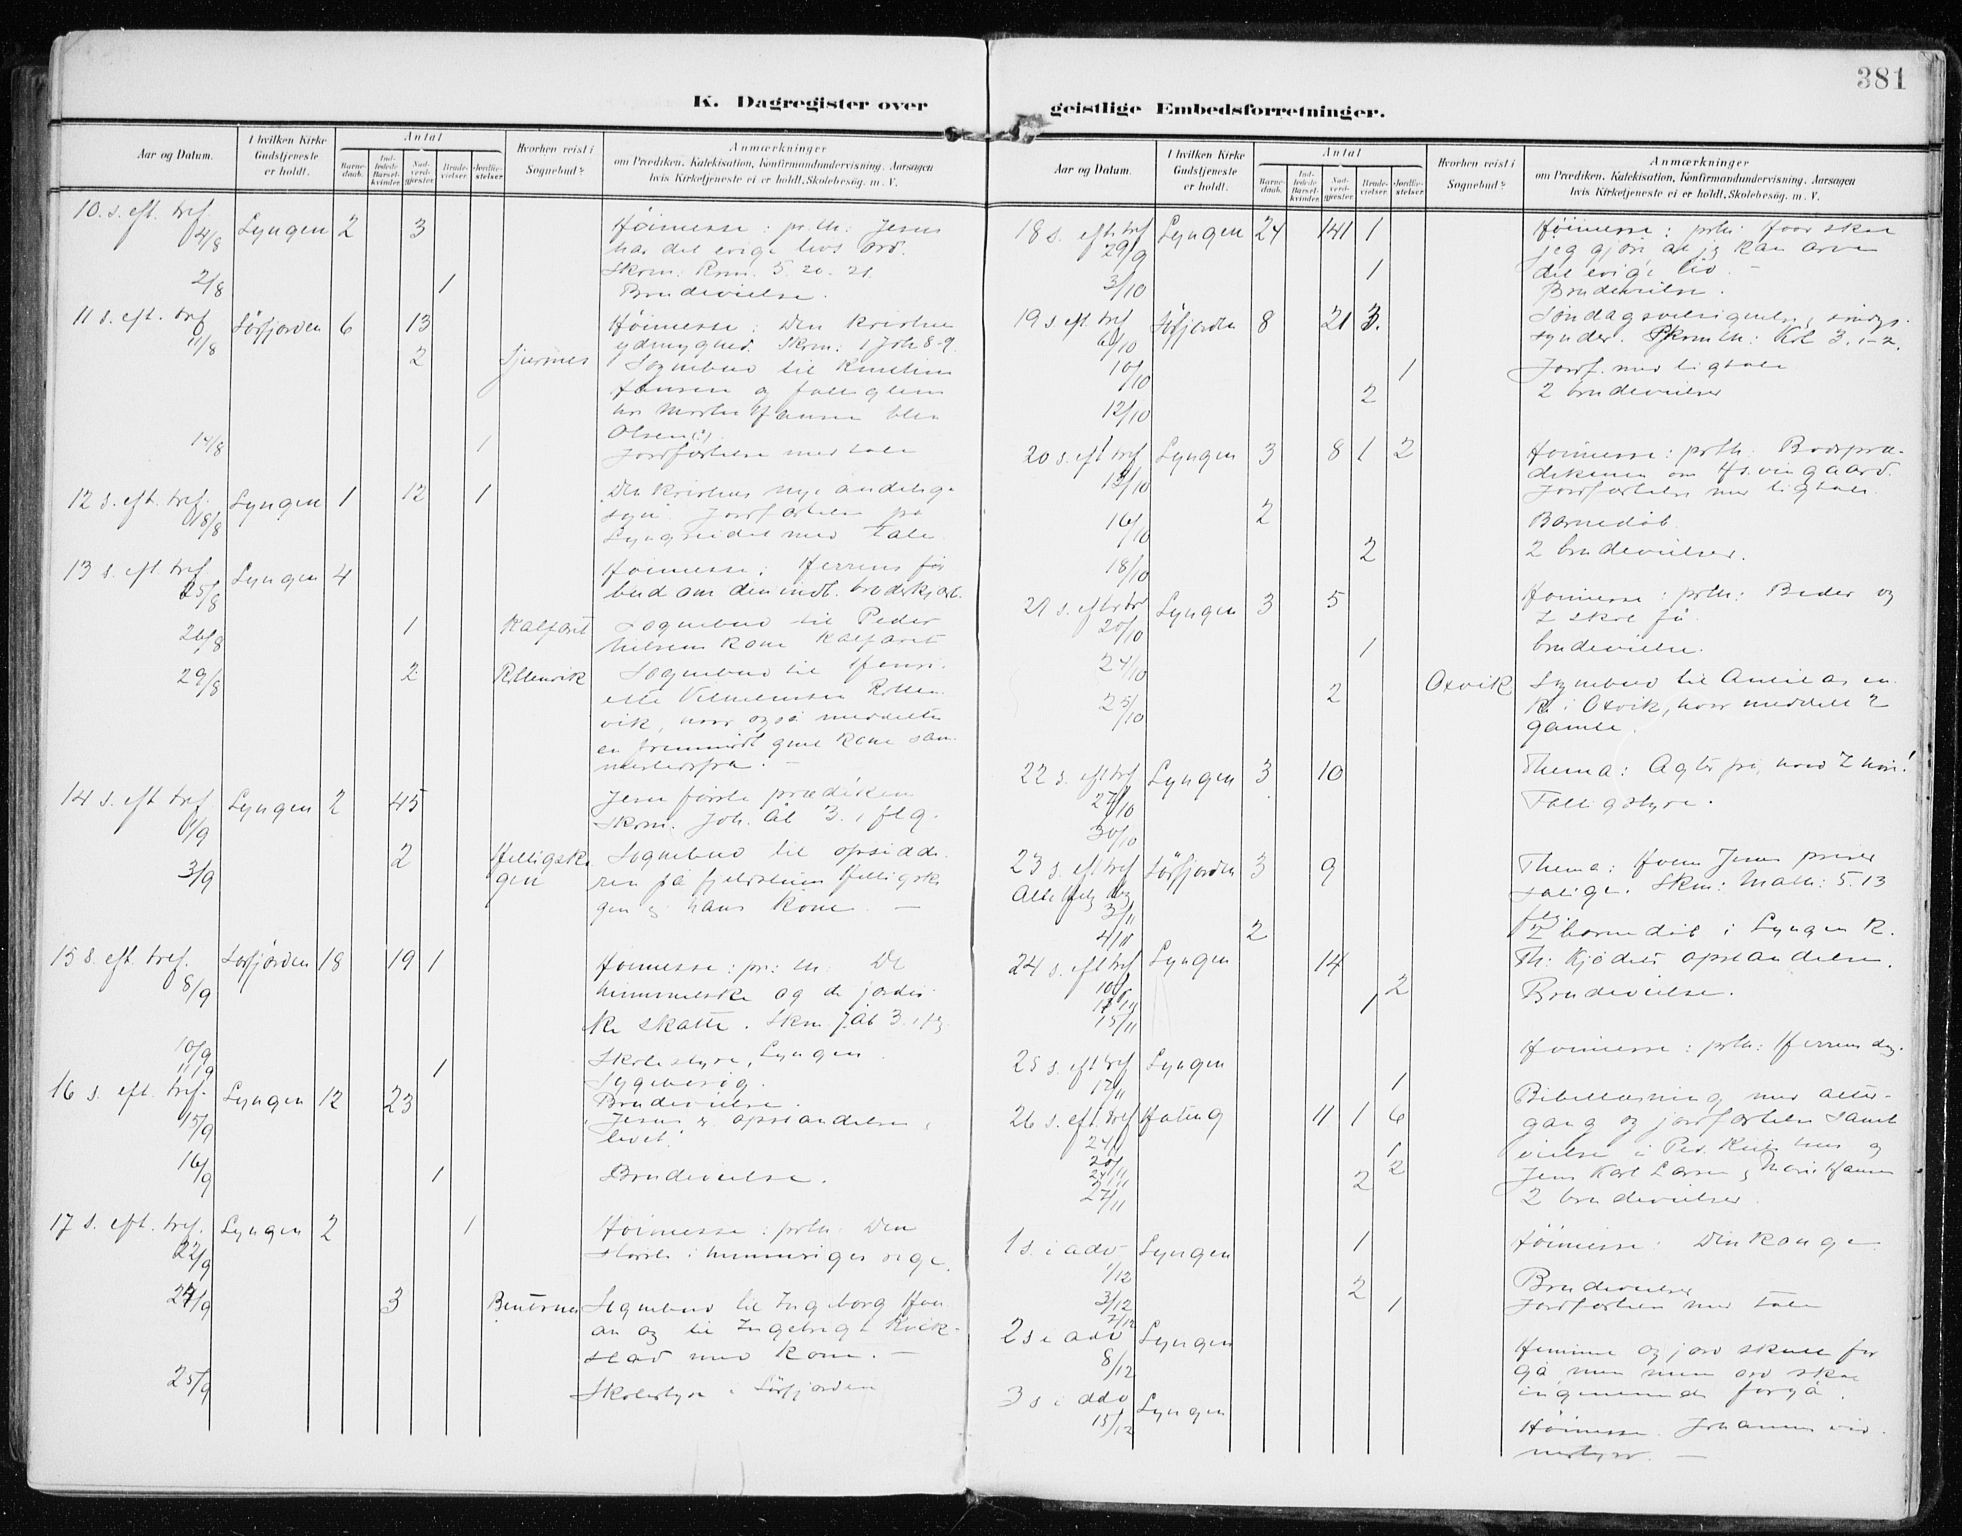 381
K. Dagregister over
geistlige Embedsforretninger.
Aar og Datum.
I hvilken Kirke Gudstjeneste er holdt.
Antal
Barnedaab.
Indledede Barselkvinder
Nadverdgjæster
Brudevielser
Jordfæstelser
Hvorhen reist i Sognebud?
Anmærkninger
om Prædiken, Katekisation, Konfirmandundervisning, Aarsagen
hvis Kirketjeneste ei er holdt, Skolebesøg. m. V.
10. s. eft. tref 4/8 Lyngen 2 3 Høimesse: pr.th: Jesus
har det evige livs ord.
Skrm: Rom. 5. 20. 21.
2/8 1 Brudevielse.
11 s. eft. tref 11/8 Sørfjorden 6 13 Høimesse: Den kristne
ydmyghed. Skrm: 1 Joh 8-9.
2 Sognebud til
Hansen og
Olsen (?)
14/8 1 Jordfæstelse med tale
12 s. eft. tref. 18/8 Lyngen 1 12 1 Den kristnes nye andelige
syn. Jordfæstelse på
Lyngseidet med tale.
13 s. eft tref 25/8 Lyngen 4 Høimesse: Herrens for
bud om den indb. broderkjærl.
26/8 1 Kalfaret Sognebud til Peder
Nielsens kone Kalfaret
29/8 2 Rottenvik Sognebud til Henri-
ette Vilhelmsen Rotten
vik, hvor også meddeltes
en fremmed gml kone sam-
mestedsfra.
14 s. eft tref 1/9 Lyngen 2 45 Jesu første prædiken
Skrm. Joh. Åb 3. 1 flg.
3/9 2 Helligsko
gen Sognebud til opsidde-
ren på fjeldstuen Helligsko
gen og hans kone. —
15 s. eft. tref. 8/9 Sørfjorden 18 19 1 Høimesse: pr: th: De
himmelske og de jordis-
ke skatte. Skrm Jak 3. 1 flg.
10/9 Skolestyre, Lyngen.
11/9 1 Sygebesøg.
Brudevielse.
16 s. eft. tref. 15/9 Lyngen 12 23 Jesus er opstandelsen,
livet.
16/9 1 Brudevielse.
17 s. eft. tref. 22/9 Lyngen 2 1 Høimesse: prth: Den
største i himmeriges rige.
24/9 3 Sognebud til Ingeborg
og til Ingebrigt Kvik-
stad med kone. —
25/9 Skolestyre i Sørfjorden
Aar og Datum.
I hvilken Kirke Gudstjeneste er holdt.
Antal
Barnedaab.
Indledede Barselkvinder
Nadverdgjæster
Brudevielser
Jordfæstelser
Hvorhen reist i Sognebud?
Anmærkninger
om Prædiken, Katekisation, Konfirmandundervisning, Aarsagen
hvis Kirketjeneste ei er holdt, Skolebesøg. m. V.
18 s. eft tref 29/9 Lyngen 24 141 1 Høimesse: prth: Hvar skal
jeg gjøre, at jeg kan arve
det evige liv. —
3/10 1 Brudevielse.
19 s eft tref 6/10 Sørfjorden 8 21 3. Søndagsvelsignelse,
synder. Skrmth: Kol 3. 1-2.
10/10 1 Jordf. med ligtale
12/10 2 2 brudevielser
20 s. eft tref 13/10 Lyngen 3 8 1 2 Høimesse: prth: Bodspræ-
dikenen om Hs. vingaard.
Jordfæstelse med ligtale.
16/10 2 Barnedåb.
18/10 2 2 brudevielser.
21 s. eft tref 20/10 Lyngen 3 5 Høimesse: prth: Beder og
I skal få.
24/10 1 brudevielse.
25/10 2 Oxvik Sognebud til
i Oxvik, hvor meddelt 2
gamle.
22 s. eft tref 27/10 Lyngen 3 10 Thema: Agter på, hvad I hører!
30/10 Fattigstyre.
23 s. eft tref Alle helg. dag 3/11 Sørfjorden 3 9 Thema: Hvem Jesus priser
salige. Skrm: Math: 5. 13
flg.
4/11 2 2 barnedåb i Lyngen K.
24 s. eft tref 10/11 Lyngen 14 2 Th: Kjødets opstandelse.
15/11 1 Brudevielse.
25 s. eft tref 17/11 Lyngen 1 Høimesse: prth: Herrens dag.
26 s. eft. tref 24/11 11 1 6 Bibellæsning med alter-
gang og jordfæstelse samt
vielse i Ped. hus og
Jens Karl Larsen
20/11 1
2
27/11 2 2 brudevielser.
1 s. i adv. 1/12 Lyngen 1 Høimesse: Din konge
3/12 2 Brudevielser
7/12 1 Jordfæstelse med tale
2 s i adv 8/12 Lyngen Himmel og jord skulle for
gå, men mine ord skal
ingenlunde forgå.
3 s. i adv 15/12 Lyngen Høimesse. Johannes vid-
nesbyrd. —